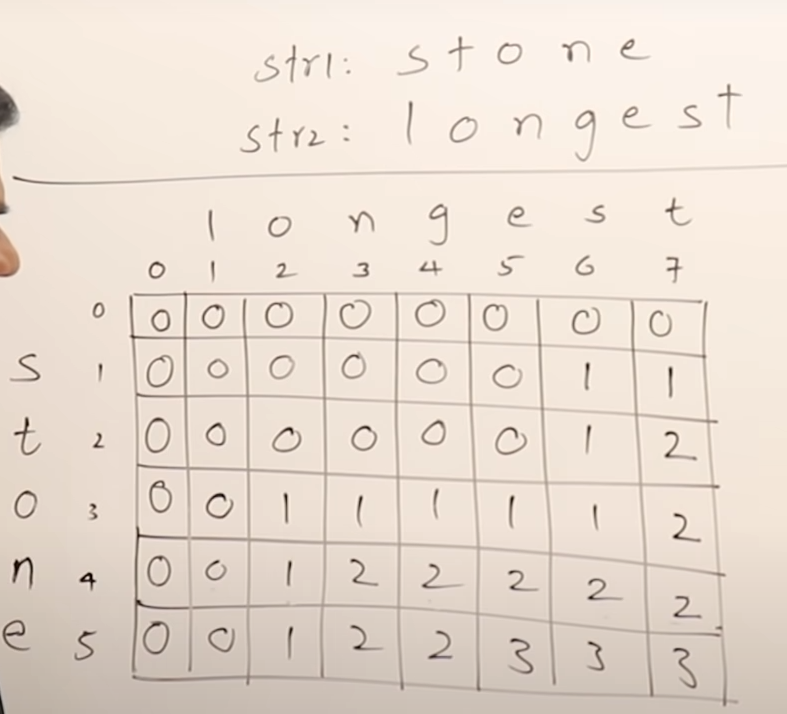 str1: stone
str2: longest
l o n g e s t
0 1 2 3 4 5 6 7
0 0 0 0 0 0 0 0 0
s 1 0 0 0 0 0 0 1 1
t 2 0 0 0 0 0 0 1 2
o 3 0 0 1 1 1 1 1 2
n 4 0 0 1 2 2 2 2 2
e 5 0 0 1 2 2 3 3 3